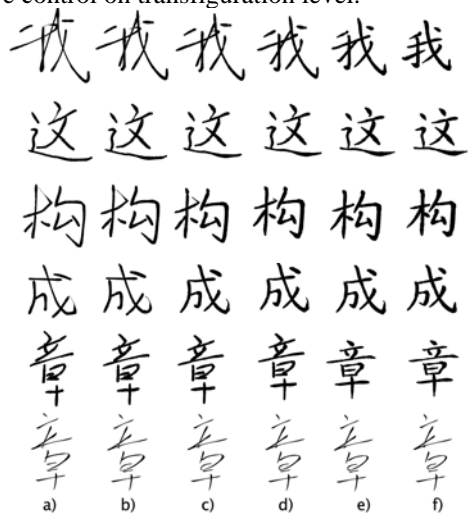 e control on transfiguration level.
我 我 我 我 我 我
这 这 这 这 这 这
构 构 构 构 构 构
成 成 成 成 成 成
章 章 章 章 章 章
章 章 章 章 章 章
a) b) c) d) e) f)